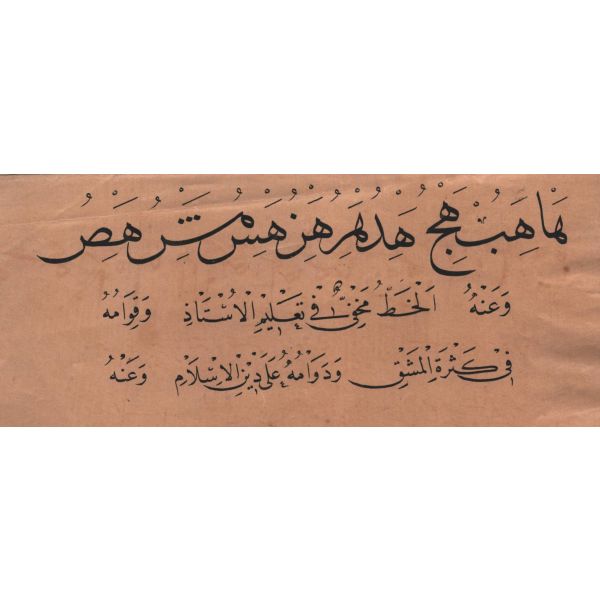 ها هب هج هد هر هز هس هش هص
وَعَنْهُ الْخَطُّ مَخْفِيٌّ فِي تَعْلِيمِ الْاُسْتَاذِ وَقِوَامُهُ
فِي كَثْرَةِ الْمَشْقِ وَدَوَامُهُ عَلَى دِينِ الْاِسْلَامِ وَعَنْهُ